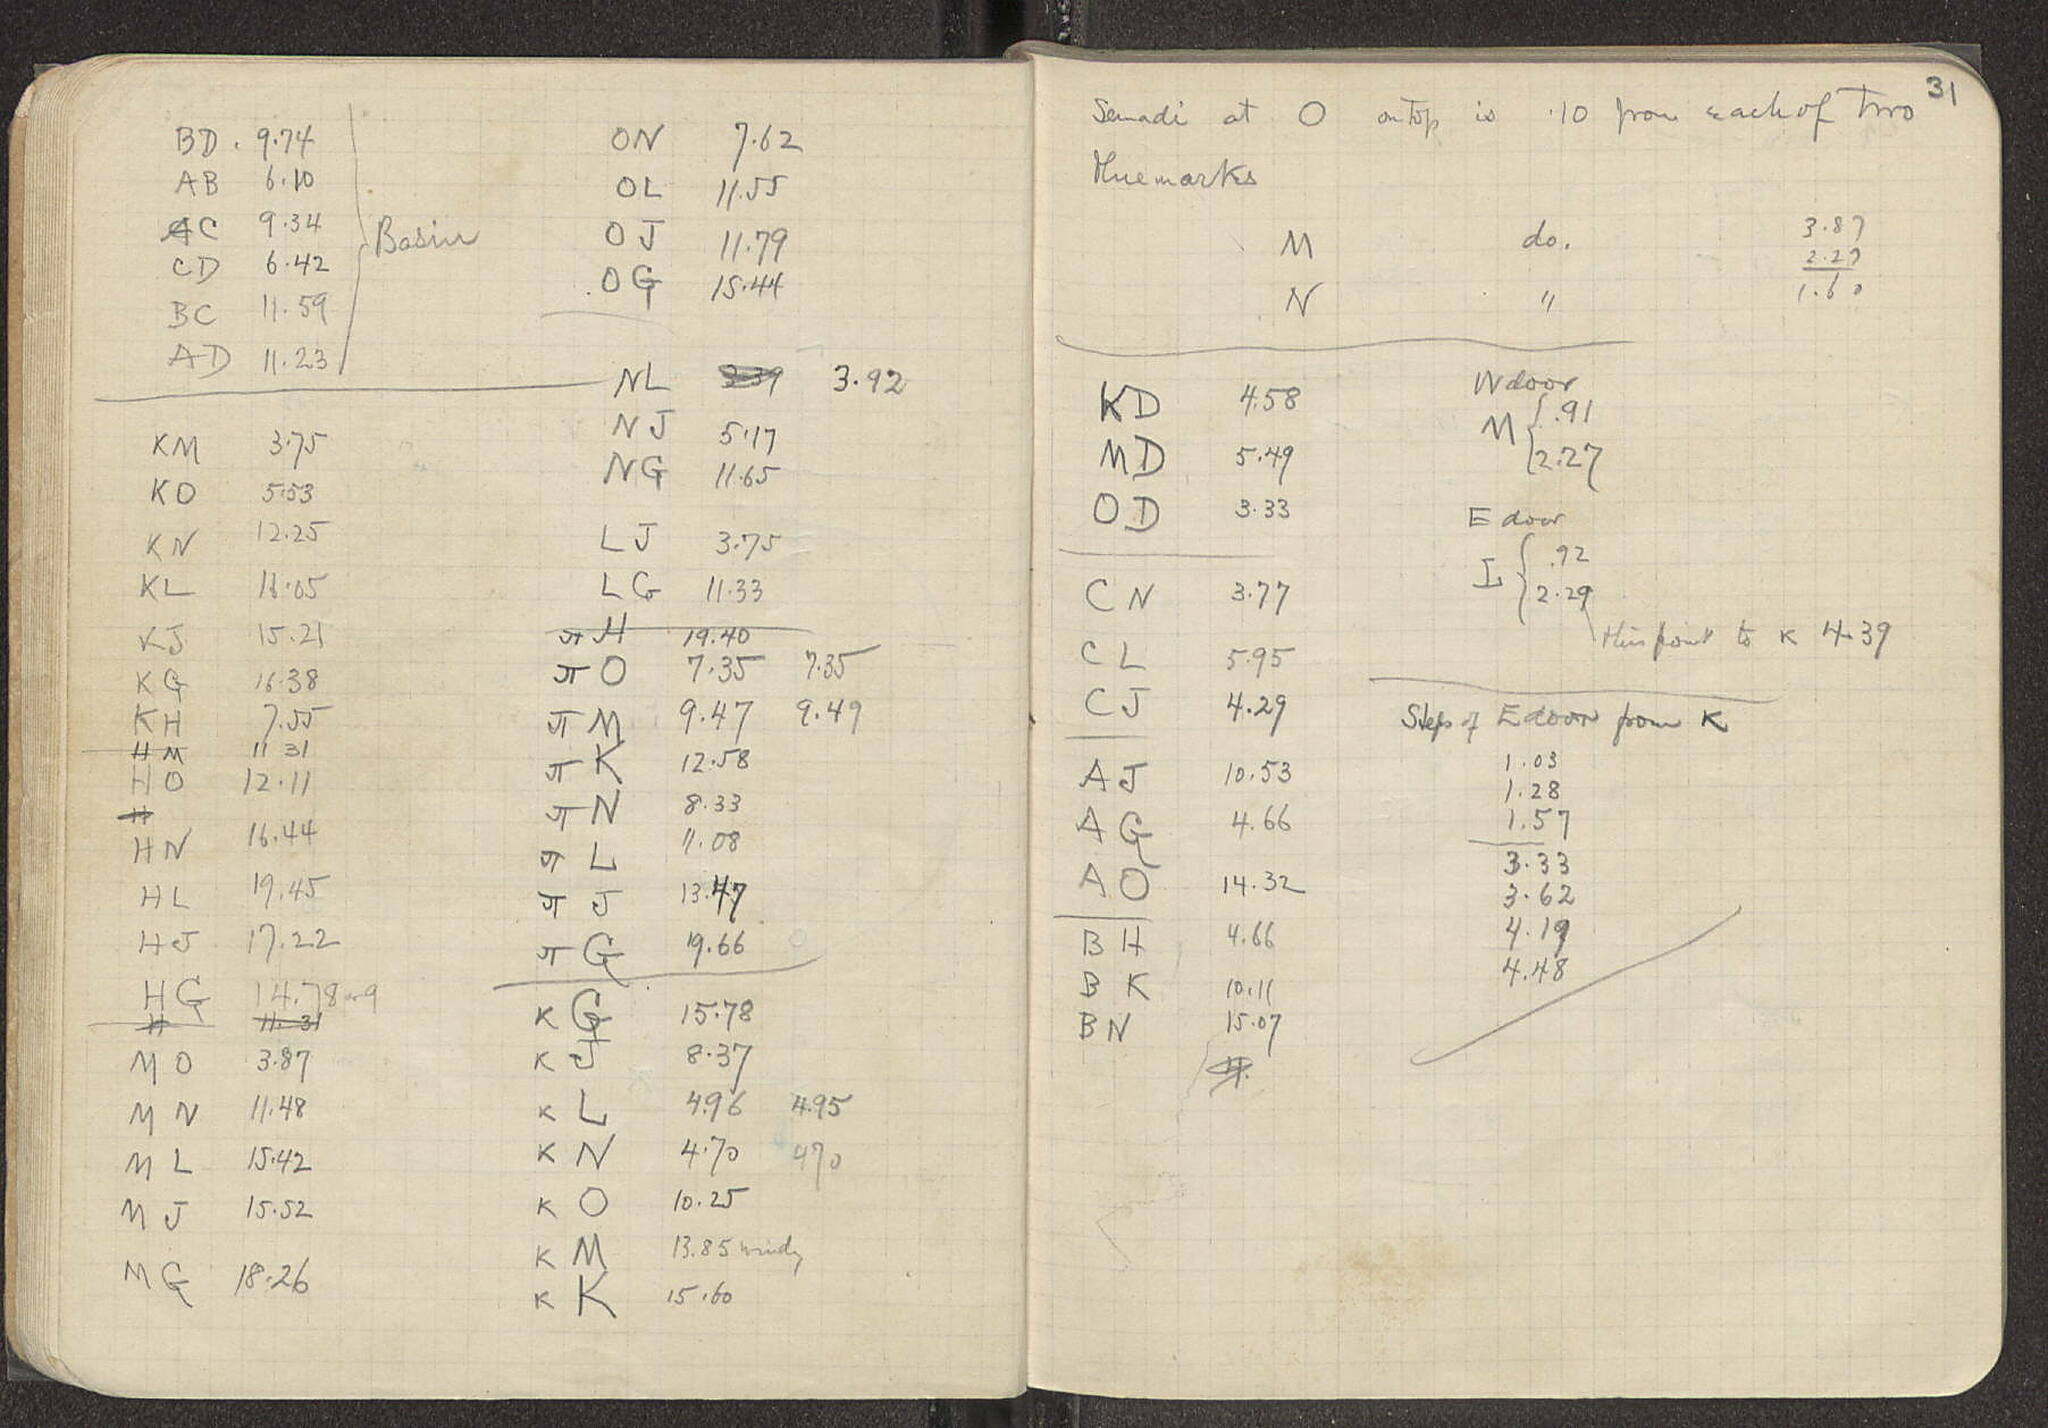 BD. 9.74
AB 6.10
AC 9.34
CD 6.42
BC 11.59
AD 11.23
Basin
KM 3.75
KO 5.53
KN 12.25
KL 16.05
KJ 15.21
KG 16.38
KH 7.55
HM 11 31
HO 12.11
H
HN 16.44
HL 19.45
HJ 17.22
HG 14.78 or 9
H 11.31
MO 3.87
MN 11.48
ML 15.42
MJ 15.52
MG 18.26
ON 7.62
OL 11.55
OJ 11.79
OG 15.44
NL 3.92
NJ 5.17
NG 11.65
LJ 3.75
LG 11.33
π H 19.40
π O 7.35 7.35
π M 9.47 9.49
π K 12.58
π N 8.33
π L 11.08
π J 13.47
π G 19.66
κ G 15.78
κ J 8.37
κ L 4.96 4.95
κ N 4.70 470
κ O 10.25
κ M 13.85 windy
κ K 15.60
31
at O on top is .10 from each of two
bluemarks
M do.
N "
3.87
2.27
1.60
KD 4.58
MD 5.49
OD 3.33
CN 3.77
CL 5.95
CJ 4.29
AJ 10.53
AG 4.66
AO 14.32
BH 4.66
BK 10.11
BN 15.07
W door
M { .91
2.27
E door
L { .92
2.29
this point to κ 4.39
Steps of E door from κ
1.03
1.28
1.57
3.33
3.62
4.19
4.48